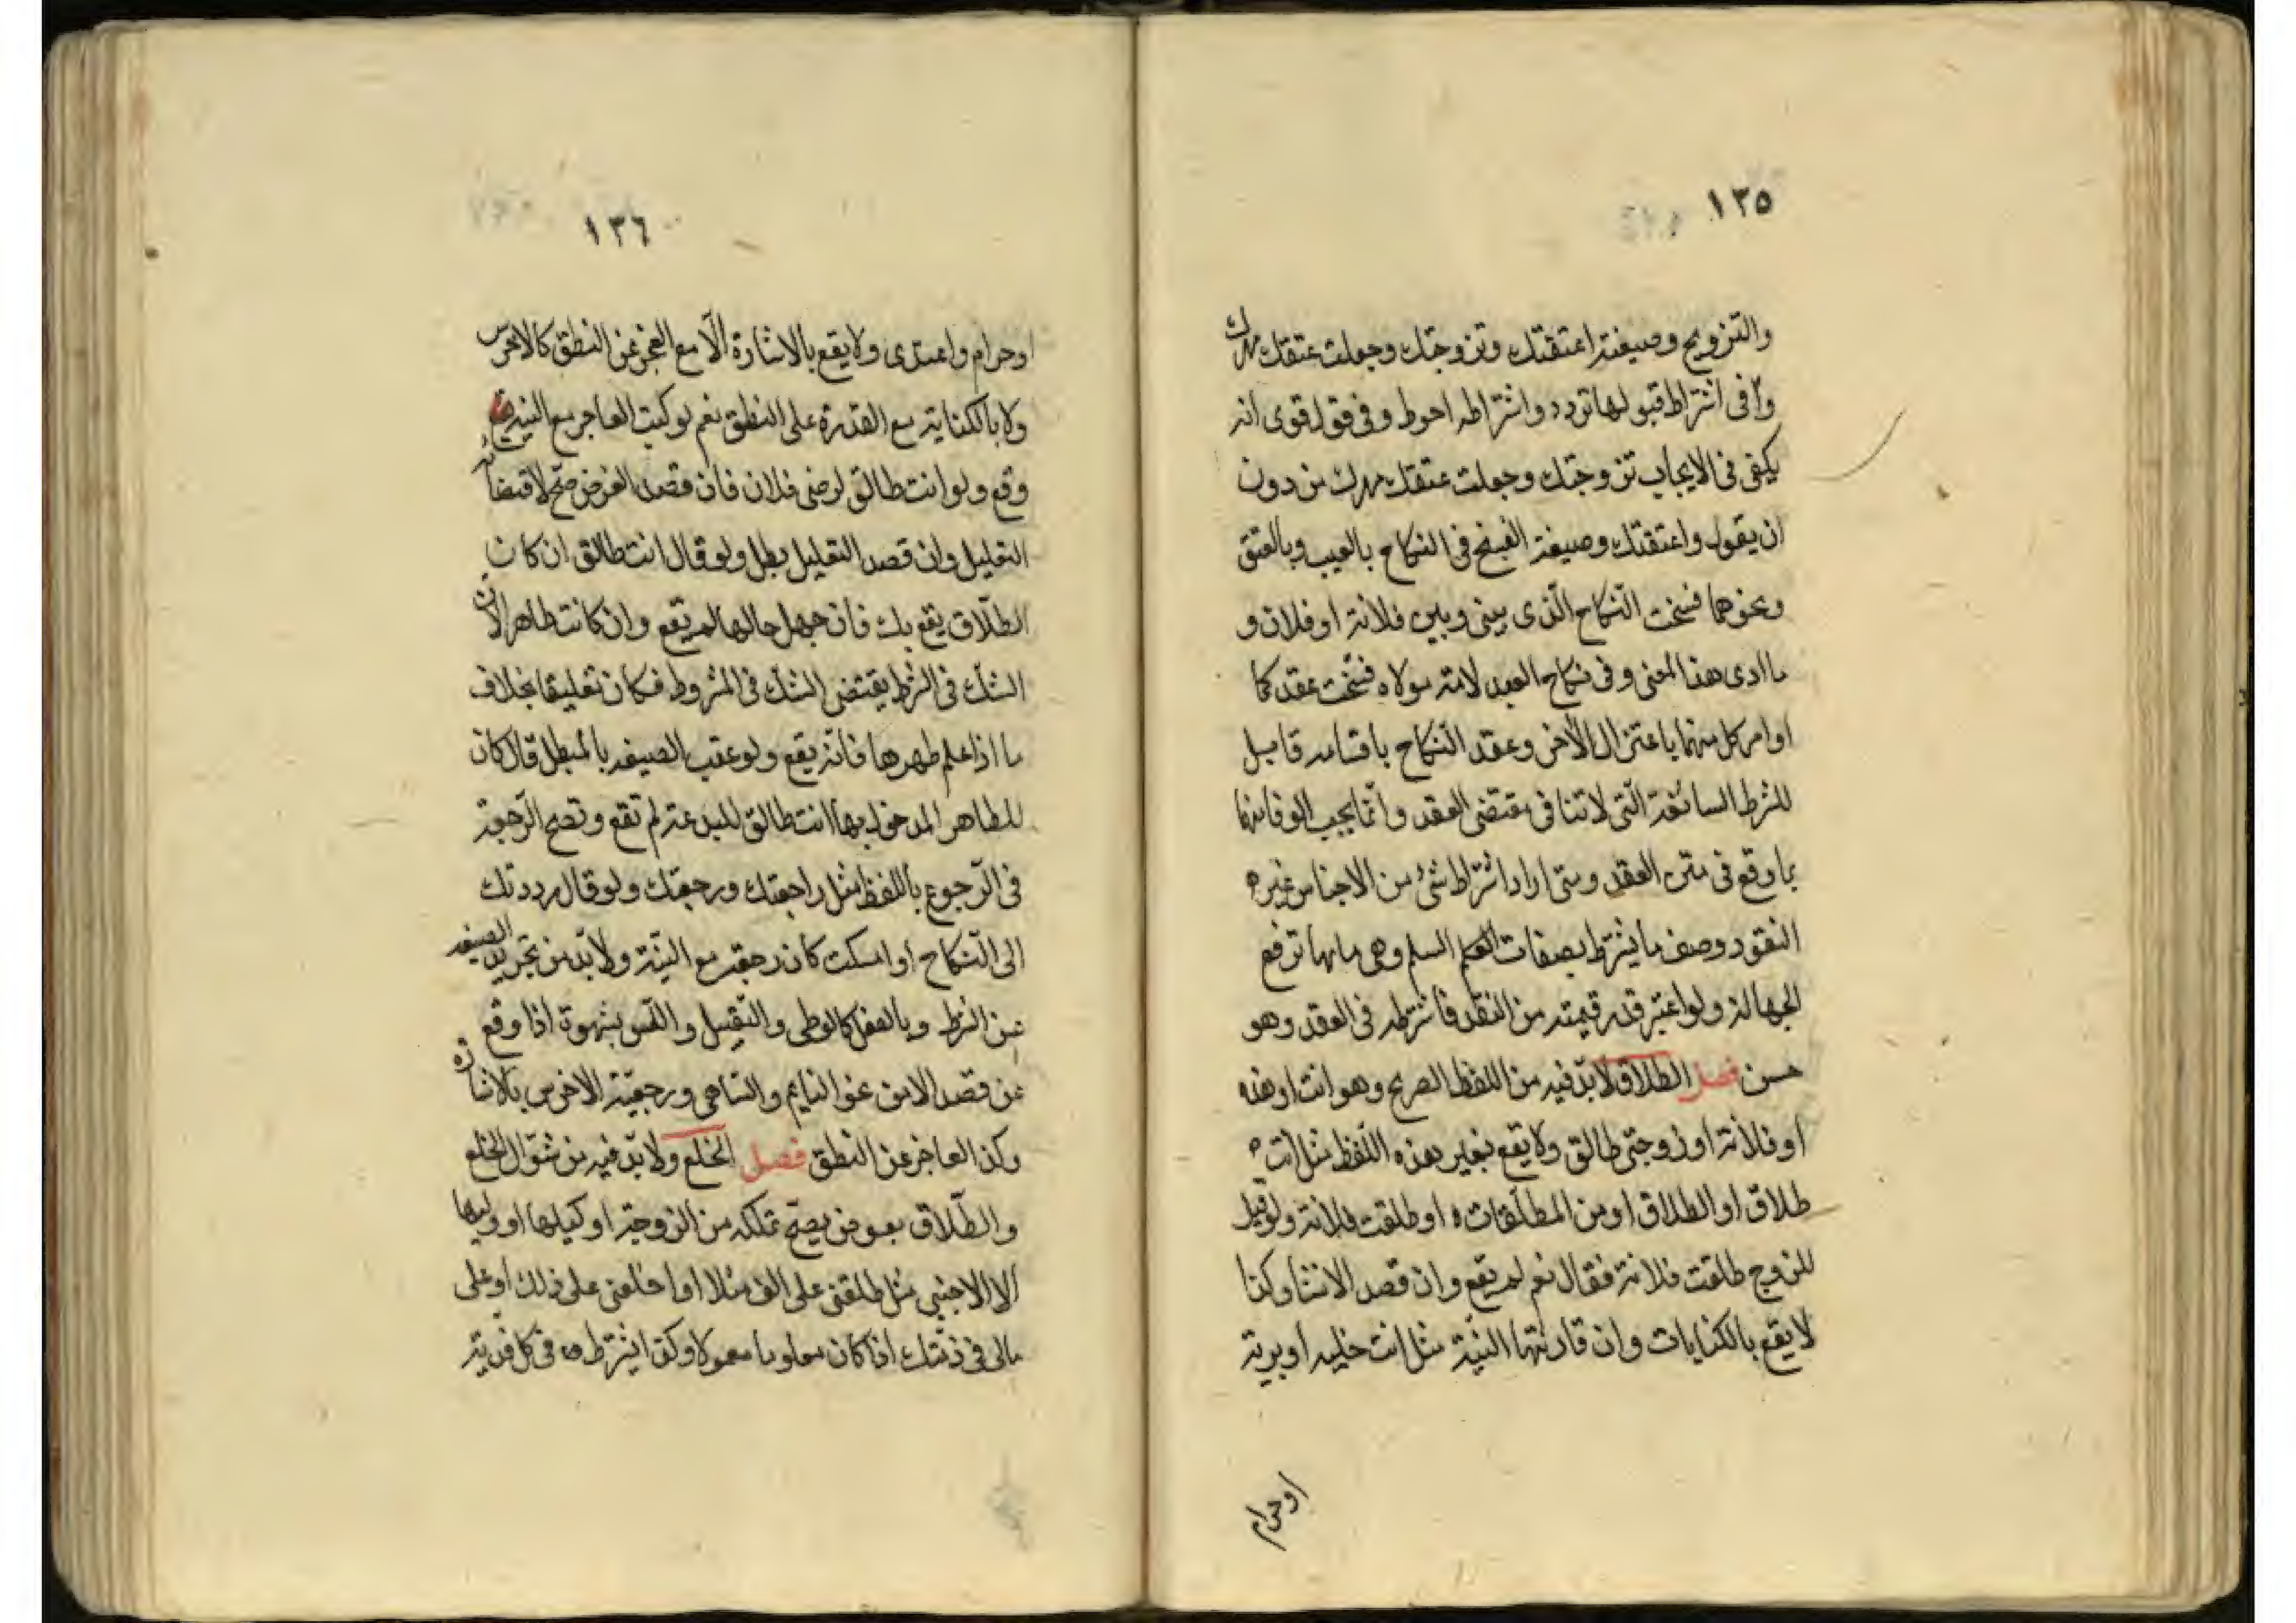 ١٣٥
والتزويج وصيغته اعتقتك وتزوجتك وجعلت عتقك مهرك
وفى اشتراط قبولها تردد واشتراطه احوط وفى قول قوى انه
يكفى فى الايجاب تزوجتك وجعلت عتقك مهرك من دون
ان يقول واعتقتك وصيغة الفسخ فى النكاح بالعيب وبالعتق
ونحوهما فسخت النكاح الّذى بينى وبين فلانة او فلان و
ما ادى هذا المعنى وفى نكاح العبد لامة مولاه فسخت عقدكما
او امر كل منهما باعتزال الاخر وعقد النكاح باقسامه قابل
للشرط السائغة الّتى لا تنافى مقتضى العقد وانّما يجب الوفا منها
بما وقع فى متن العقد ومتى اراد اشتراط شئ من الاجناس غير
النقود وصف ما يشترط بصفات السلم وهى ما بها ترفع
الجهالة ولو اعتبر قدر قيمته من النقد فاشترطه فى العقد وهو
حسن فصل الطلاق لا بدّ فيه من اللفظ الصريح وهو انت او هذه
او فلانة او زوجتى طالق ولا يقع بغير هذه اللّفظ مثل انت
طلاق او الطلاق او من المطلّقات او طلقت فلانة ولو قيل
للزوج طلقت فلانة فقال نعم لم يقع وان قصد الانشا وكذا
لا يقع بالكنايات وان قارنتها النيّة مثل انت خليه او برية
او حرام
١٣٦
او حرام واعتدى ولا يقع بالاشارة الّا مع العجز عن النطق كالاخرس
ولا بالكناية مع القدرة على النطق نعم لو كتب العاجز مع النية
وقع ولو انت طالق لرضى فلان فان قصد الغرض صحّ لاقتضائه
التعليل وان قصد التعليل بطل ولو قال انت طالق ان كان
الطلّاق يقع بك فان جهل حالها لم يقع وان كانت طاهر الان
الشك فى الشرط يقتضى الشك فى المشروط فكان تعليقا بخلاف
ما اذا علم طهرها فانّه يقع ولو عقب الصيغه بالمبطل قال كان
للطاهر المدخول بها انت طالق للبدعة لم تقع وتصح الرّجعة
فى الرّجوع باللفظ مثل راجعتك ورجعتك ولو قال رددتك
الى النّكاح او امسكت كان رجعة مع النيّة ولا بدّ من تجريد الصيغه
عن الشرط وبالفعل كالوطى والتقبيل واللّمس بشهوة اذا وقع
عن قصد لا من نحو النايم والسّاهى ورجعيّة الاخرس بالاشارة
وكذا العاجز عن النطق فصل الخلع ولا بدّ فيه من سؤال الخلع
والطّلاق بعوض يصحّ تملكه من الزوجة او وكيلها او وليها
الا الاجنبى مثل طلقنى على الف مثلا او اخلعنى على ذلك او على
مالى فى ذمّتك اذا كان معلوما معمولا وكق ايشترط فى كل فدية